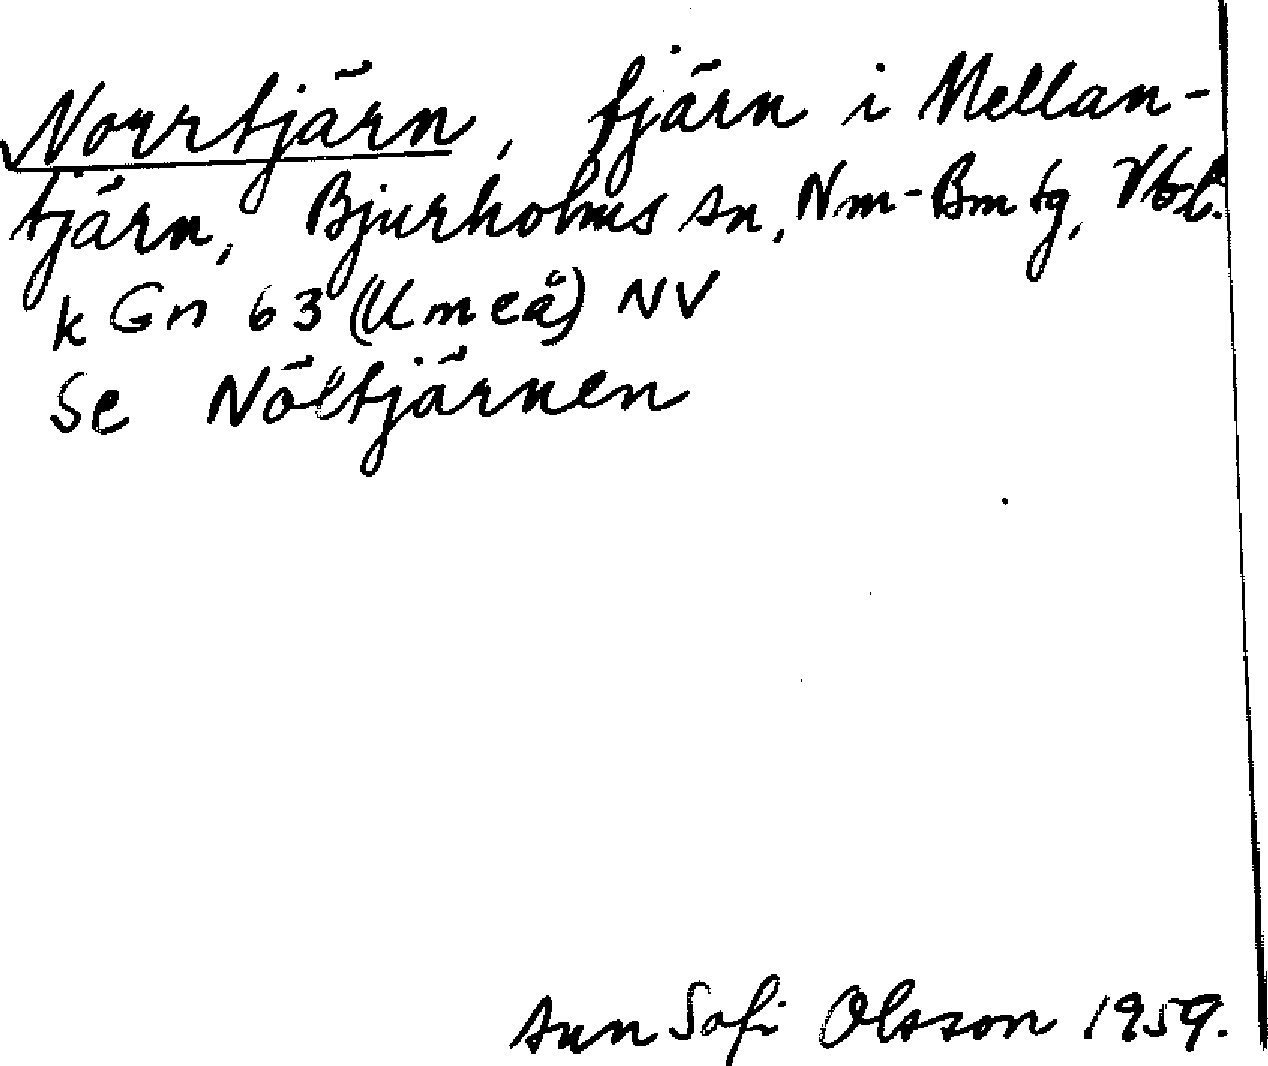 Norrtjärn, tjärn i Mellan-
tjärn, Bjurholms sn, Nm-Bm tg, Vbt.
k Gn 63 (Umeå) NV
Se Nöltjärnen
Ann Sofi Olsson 1959.